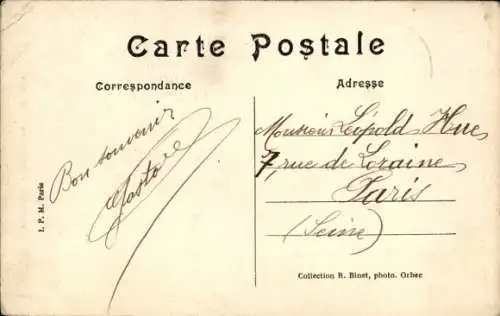 Carte Postale
Correspondance
Adresse
Bon souvenir
Monsieur Léopold Hue
7, rue de Loraine
Paris
(Seine)
I. P. M. Paris
Collection R. Binet, photo. Orbec